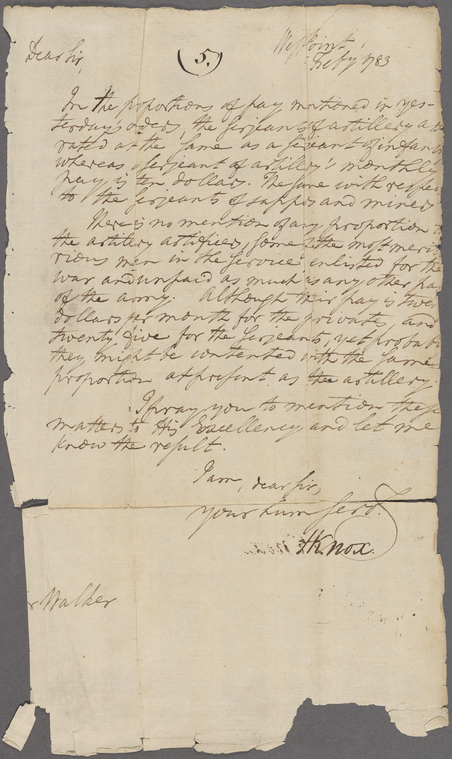 (5.)
West Point
Feby 1783
Dear Sir,
In the proportions of pay mentioned in yes-
terday's orders, the serjeants of artillery are
rated at the same as a serjeant of infantry
whereas a serjeant of artillery's monthly
pay is ten dollars. The same with respect
to the serjeants of sappers and miners
There is no mention of any proportion
the artillery artificers, some of the most meri
rious men in the service enlisted for the
war and unpaid as much as any other par
of the army. Although their pay is twen
dollars per month for the privates, and
twenty five for the serjeants, yet probab
they might be contented with the same
proportion at present as the artillery.
I pray you to mention these
matters to His Excellency and let me
know the result.
I am, dear sir,
your hum Servt.
HKnox.
r Walker